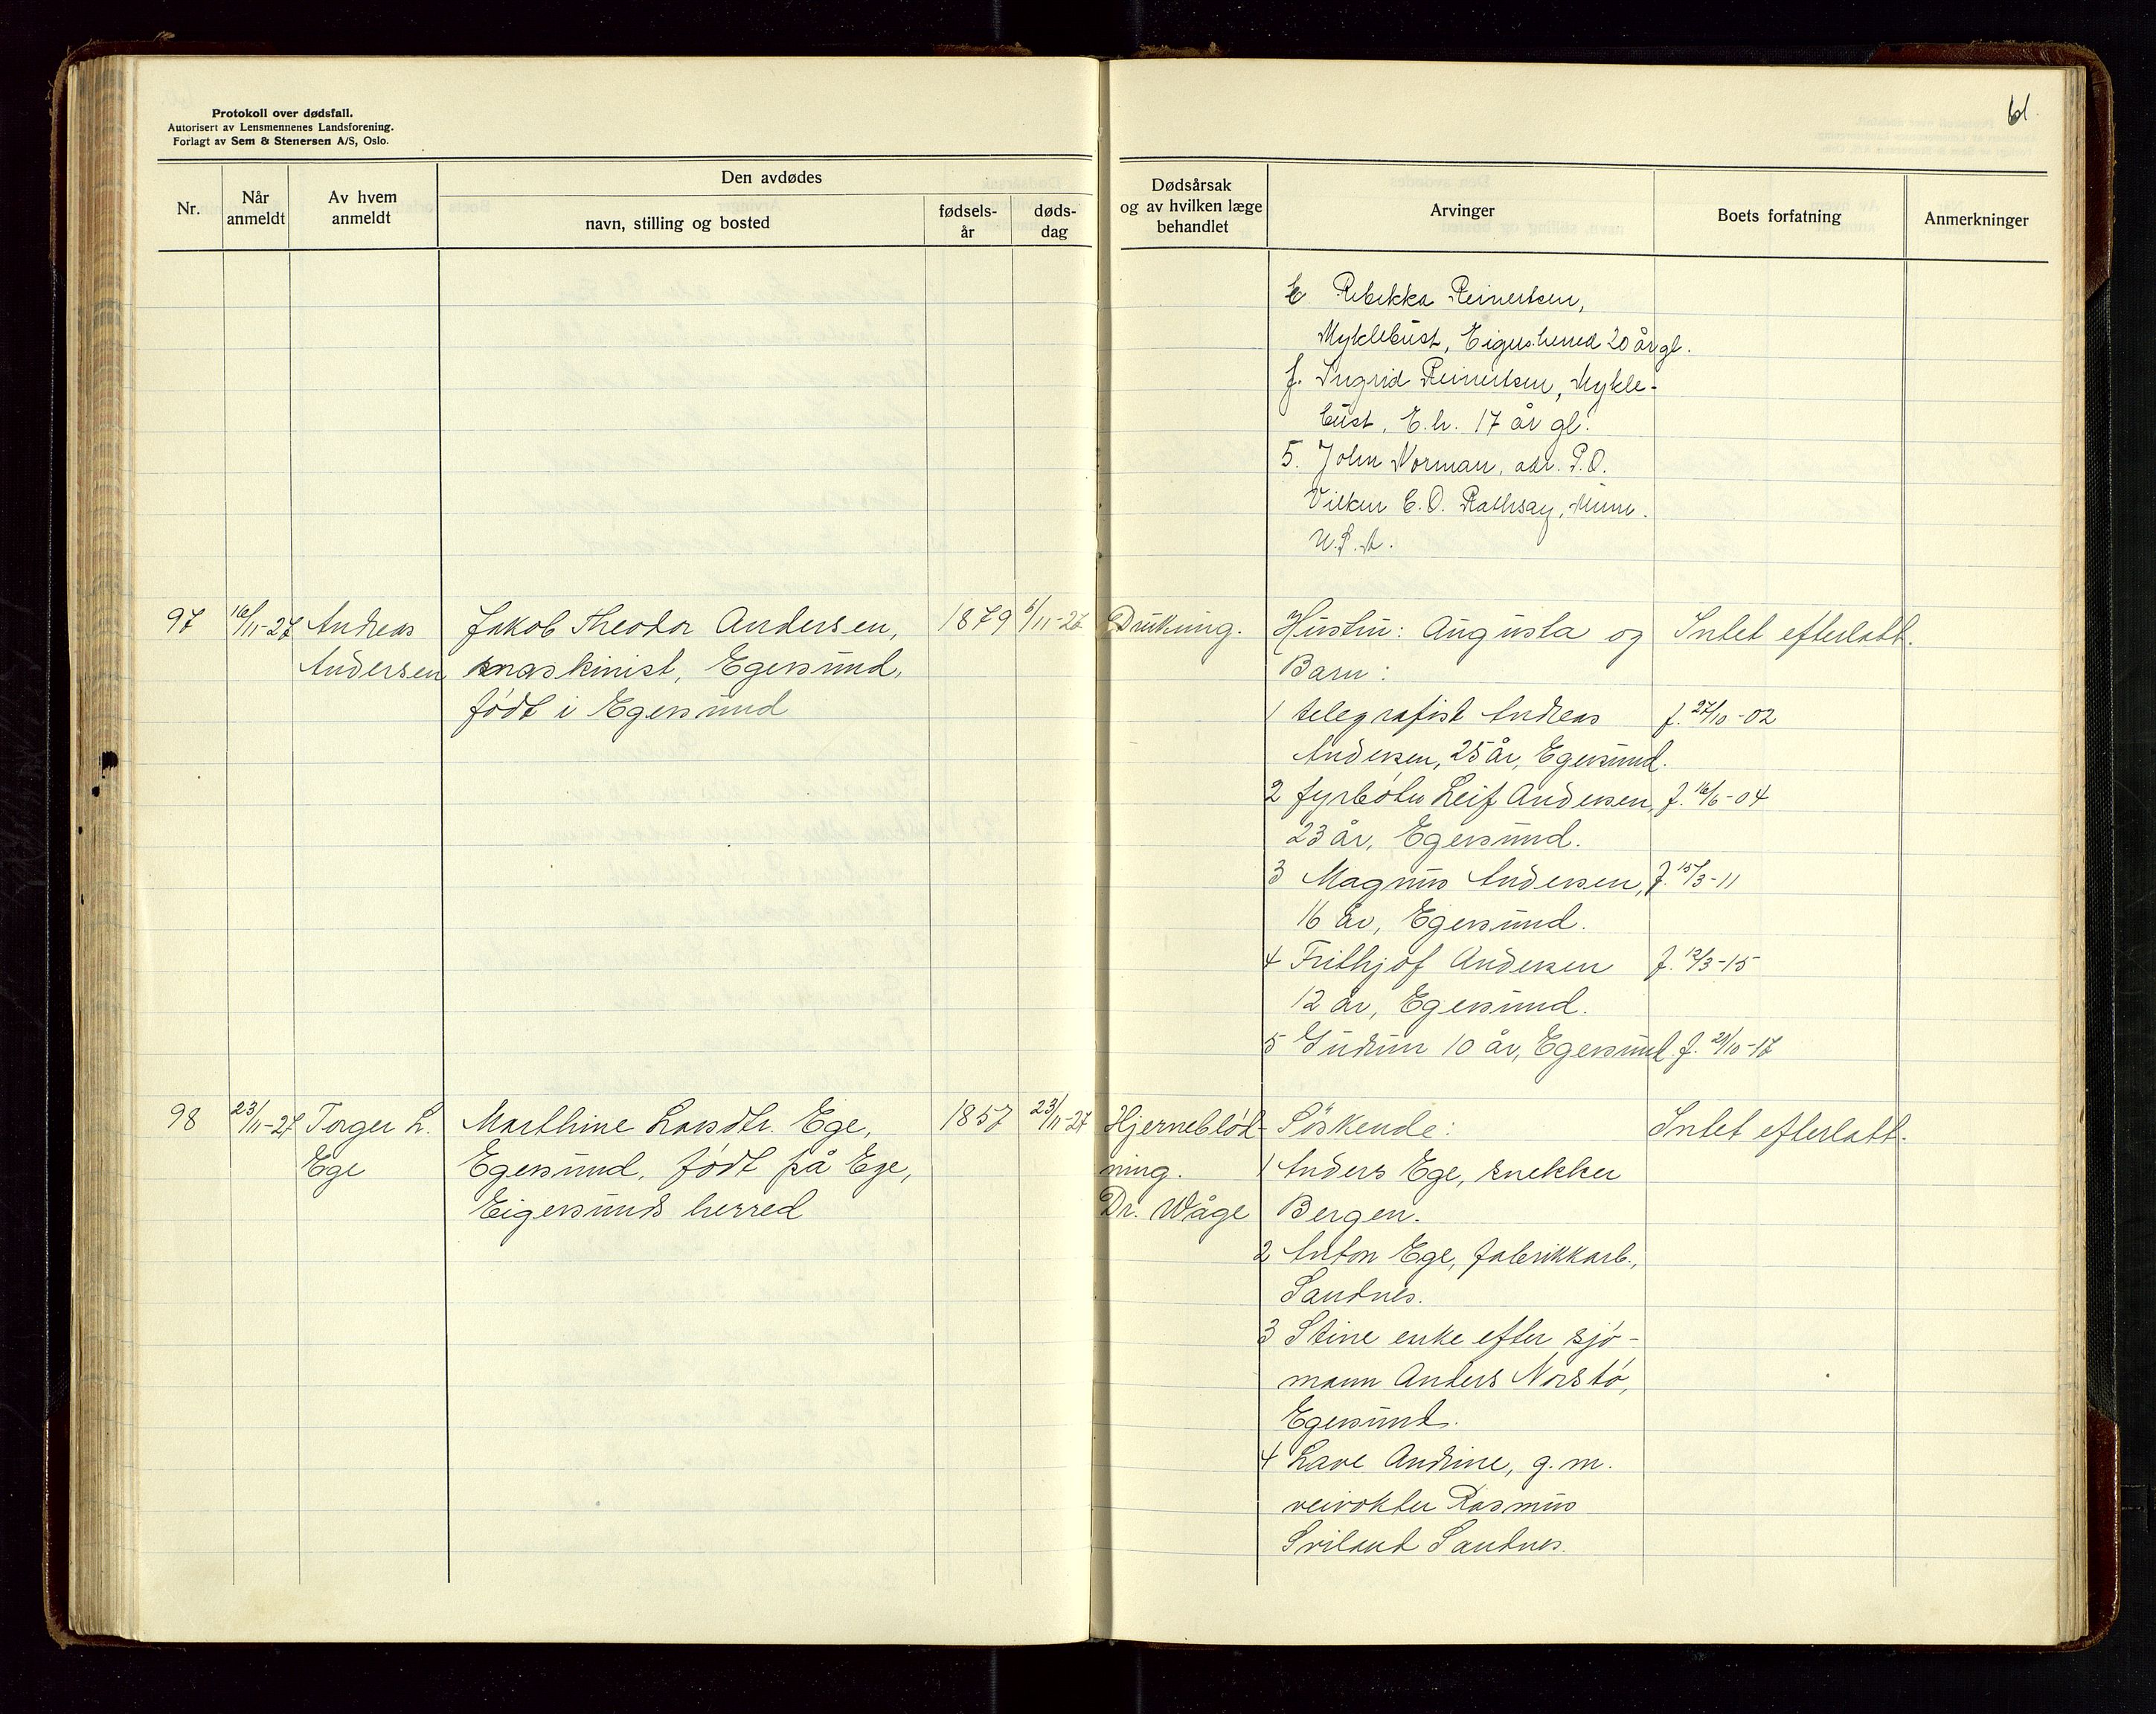 Protokoll over dødsfall.
Autorisert av Lensmennenes Landsforening.
Forlagt av Sem & Stenersen A/S, Oslo.
61.
Nr.
Når anmeldt
Av hvem anmeldt
Den avdødes
navn, stilling og bosted
fødsels-år
døds-dag
Dødsårsak og av hvilken læge behandlet
Arvinger
Boets forfatning
Anmerkninger
Rebekka Reinertsen,
Myklebust, Eigers.herred 20 år gl.
f. Ingrid Reinertsen, Mykle-
bust, E.h. 17 år gl.
5. John Norman, adr. P.O.
E.O. Rothsay, Minn.
U.S.A.
97 16/11-27 Andreas Jakob Theodor Andersen, 1879 6/11-27 Drukning. Hustru: Augusta og Intet efterlatt.
Andersen maskinist, Egersund, Barn:
født i Egersund
1 telegrafist Andreas f. 27/10-02
Andersen, 25 år, Egersund.
2 fyrbøter Leif Andersen, f. 16/6-04
23 år, Egersund.
3 Magnus Andersen, f. 15/3-11
16 år, Egersund.
4 Frithjof Andersen f. 12/3-15
12 år, Egersund.
5 Gudrun 10 år, Egersund f. 21/10-17
98 23/11-27 Torger L. Marthine Larsdtr. Ege, 1857 23/11-27 Hjerneblød- Søskende: Intet efterlatt.
Ege Egersund, født på Ege, ning. 1 Anders Ege, snekker
Eigersunds herred Dr. Wåge Bergen.
2 Anton Ege, fabrikkarb.,
Sandnes.
3 Stine enke efter sjø-
mann Anders Norstø,
Egersund.
4 Lave Andrine, g. m.
veivokter Rasmus
Sviland Sandnes.